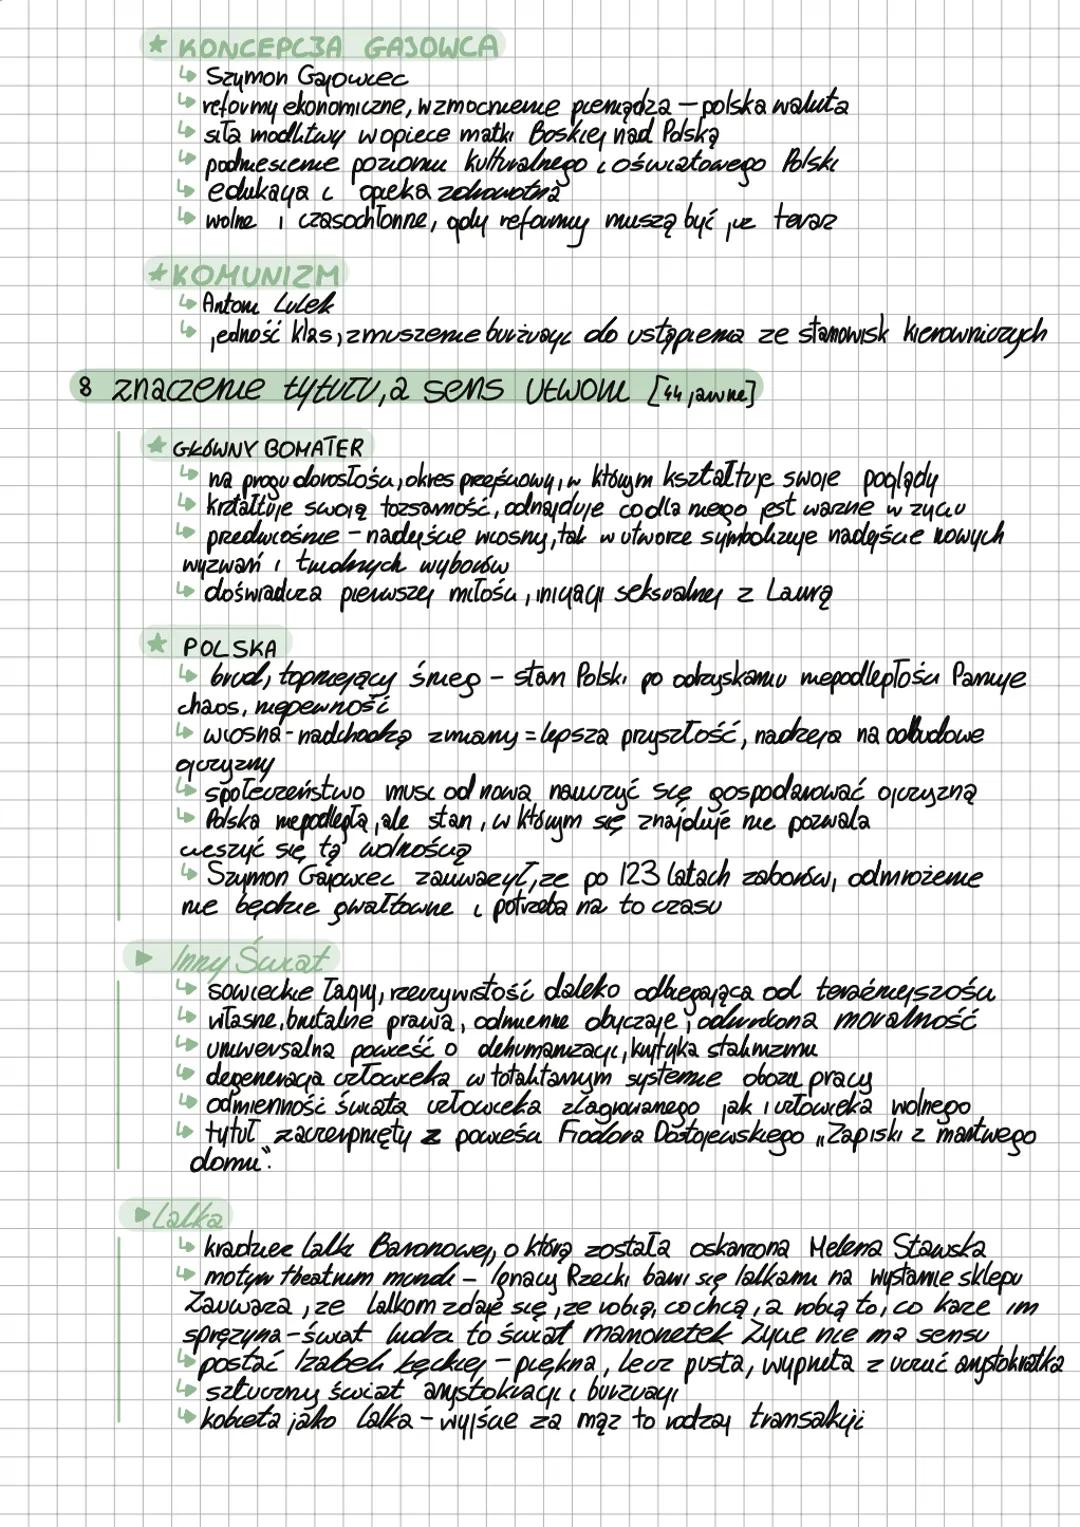 ★ KONCEPCJA GAJOWCA
↳ Szymon Gajowiec
↳ reformy ekonomiczne, wzmocnienie pieniądza – polska waluta
↳ siła modlitwy w opiece matki Boskiej nad Polską
↳ podniesienie poziomu kulturalnego i oświatowego Polski
↳ edukacja i opieka zdrowotna
↳ wolne i czasochłonne, gdy reformy muszą być już teraz
★ KOMUNIZM
↳ Antoni Lulek
↳ jedność klas, zmuszenie burżuazji do ustąpienia ze stanowisk kierowniczych
8 znaczenie tytułu, a sens utworu [44 jawne]
★ GŁÓWNY BOHATER
↳ na progu dorosłości, okres przejściowy, w którym kształtuje swoje poglądy
↳ kształtuje swoją tożsamość, odnajduje co dla niego jest ważne w życiu
↳ przedwiośnie – nadejście wiosny, tak w utworze symbolizuje nadejście nowych
wyzwań i trudnych wyborów
↳ doświadcza pierwszej miłości, inicjacji seksualnej z Laurą
★ POLSKA
↳ brud, topniejący śnieg – stan Polski po odzyskaniu niepodległości Panuje
chaos, niepewność
↳ wiosna - nadchodzą zmiany = lepsza przyszłość, nadzieja na odbudowe
ojczyzny
↳ społeczeństwo musi od nowa nauczyć się gospodarować ojczyzną
↳ Polska niepodległa, ale stan, w którym się znajduje nie pozwala
cieszyć się tą wolnością
↳ Szymon Gajowiec zauważył, że po 123 latach zaborów, odmrożenie
nie będzie gwałtowne i potrzeba na to czasu
▶ Inny Świat
↳ sowieckie łagry, rzeczywistość daleko odbiegająca od teraźniejszości
↳ własne, brutalne prawa, odmienne obyczaje, odwrócona moralność
↳ uniwersalna powieść o dehumanizacji, krytyka stalinizmu
↳ degeneracja człowieka w totalitarnym systemie obozu pracy
↳ odmienność świata człowieka zlagrowanego jak i człowieka wolnego
↳ tytuł zaczerpnięty z powieści Fiodora Dostojewskiego „Zapiski z martwego
domu".
▶ Lalka
↳ kradzież lalki Baronowej, o którą została oskarżona Helena Stawska
↳ motyw theatrum mundi – Ignacy Rzecki bawi się lalkami na wystawie sklepu
Zauważa, że lalkom zdaje się, że robią, co chcą, a robią to, co każe im
sprężyna – świat ludzi to świat marionetek Życie nie ma sensu
↳ postać Izabeli Łęckiej – piękna, lecz pusta, wyprana z uczuć arystokratka
↳ sztuczny świat arystokracji i burżuazji
↳ kobieta jako lalka – wyjście za mąż to rodzaj transakcji